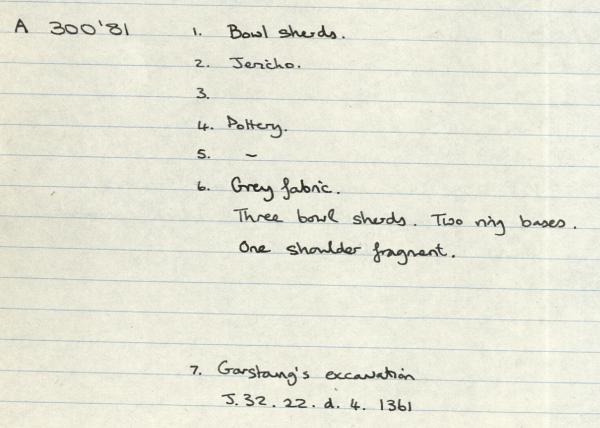 A 300'81 1. Bowl sherds.
2. Jericho.
3.
4. Pottery.
5. ~
6. Grey fabric.
Three bowl sherds. Two ring bases.
One shoulder fragment.
7. Garstang's excavation
J. 32. 22. d. 4. 1361